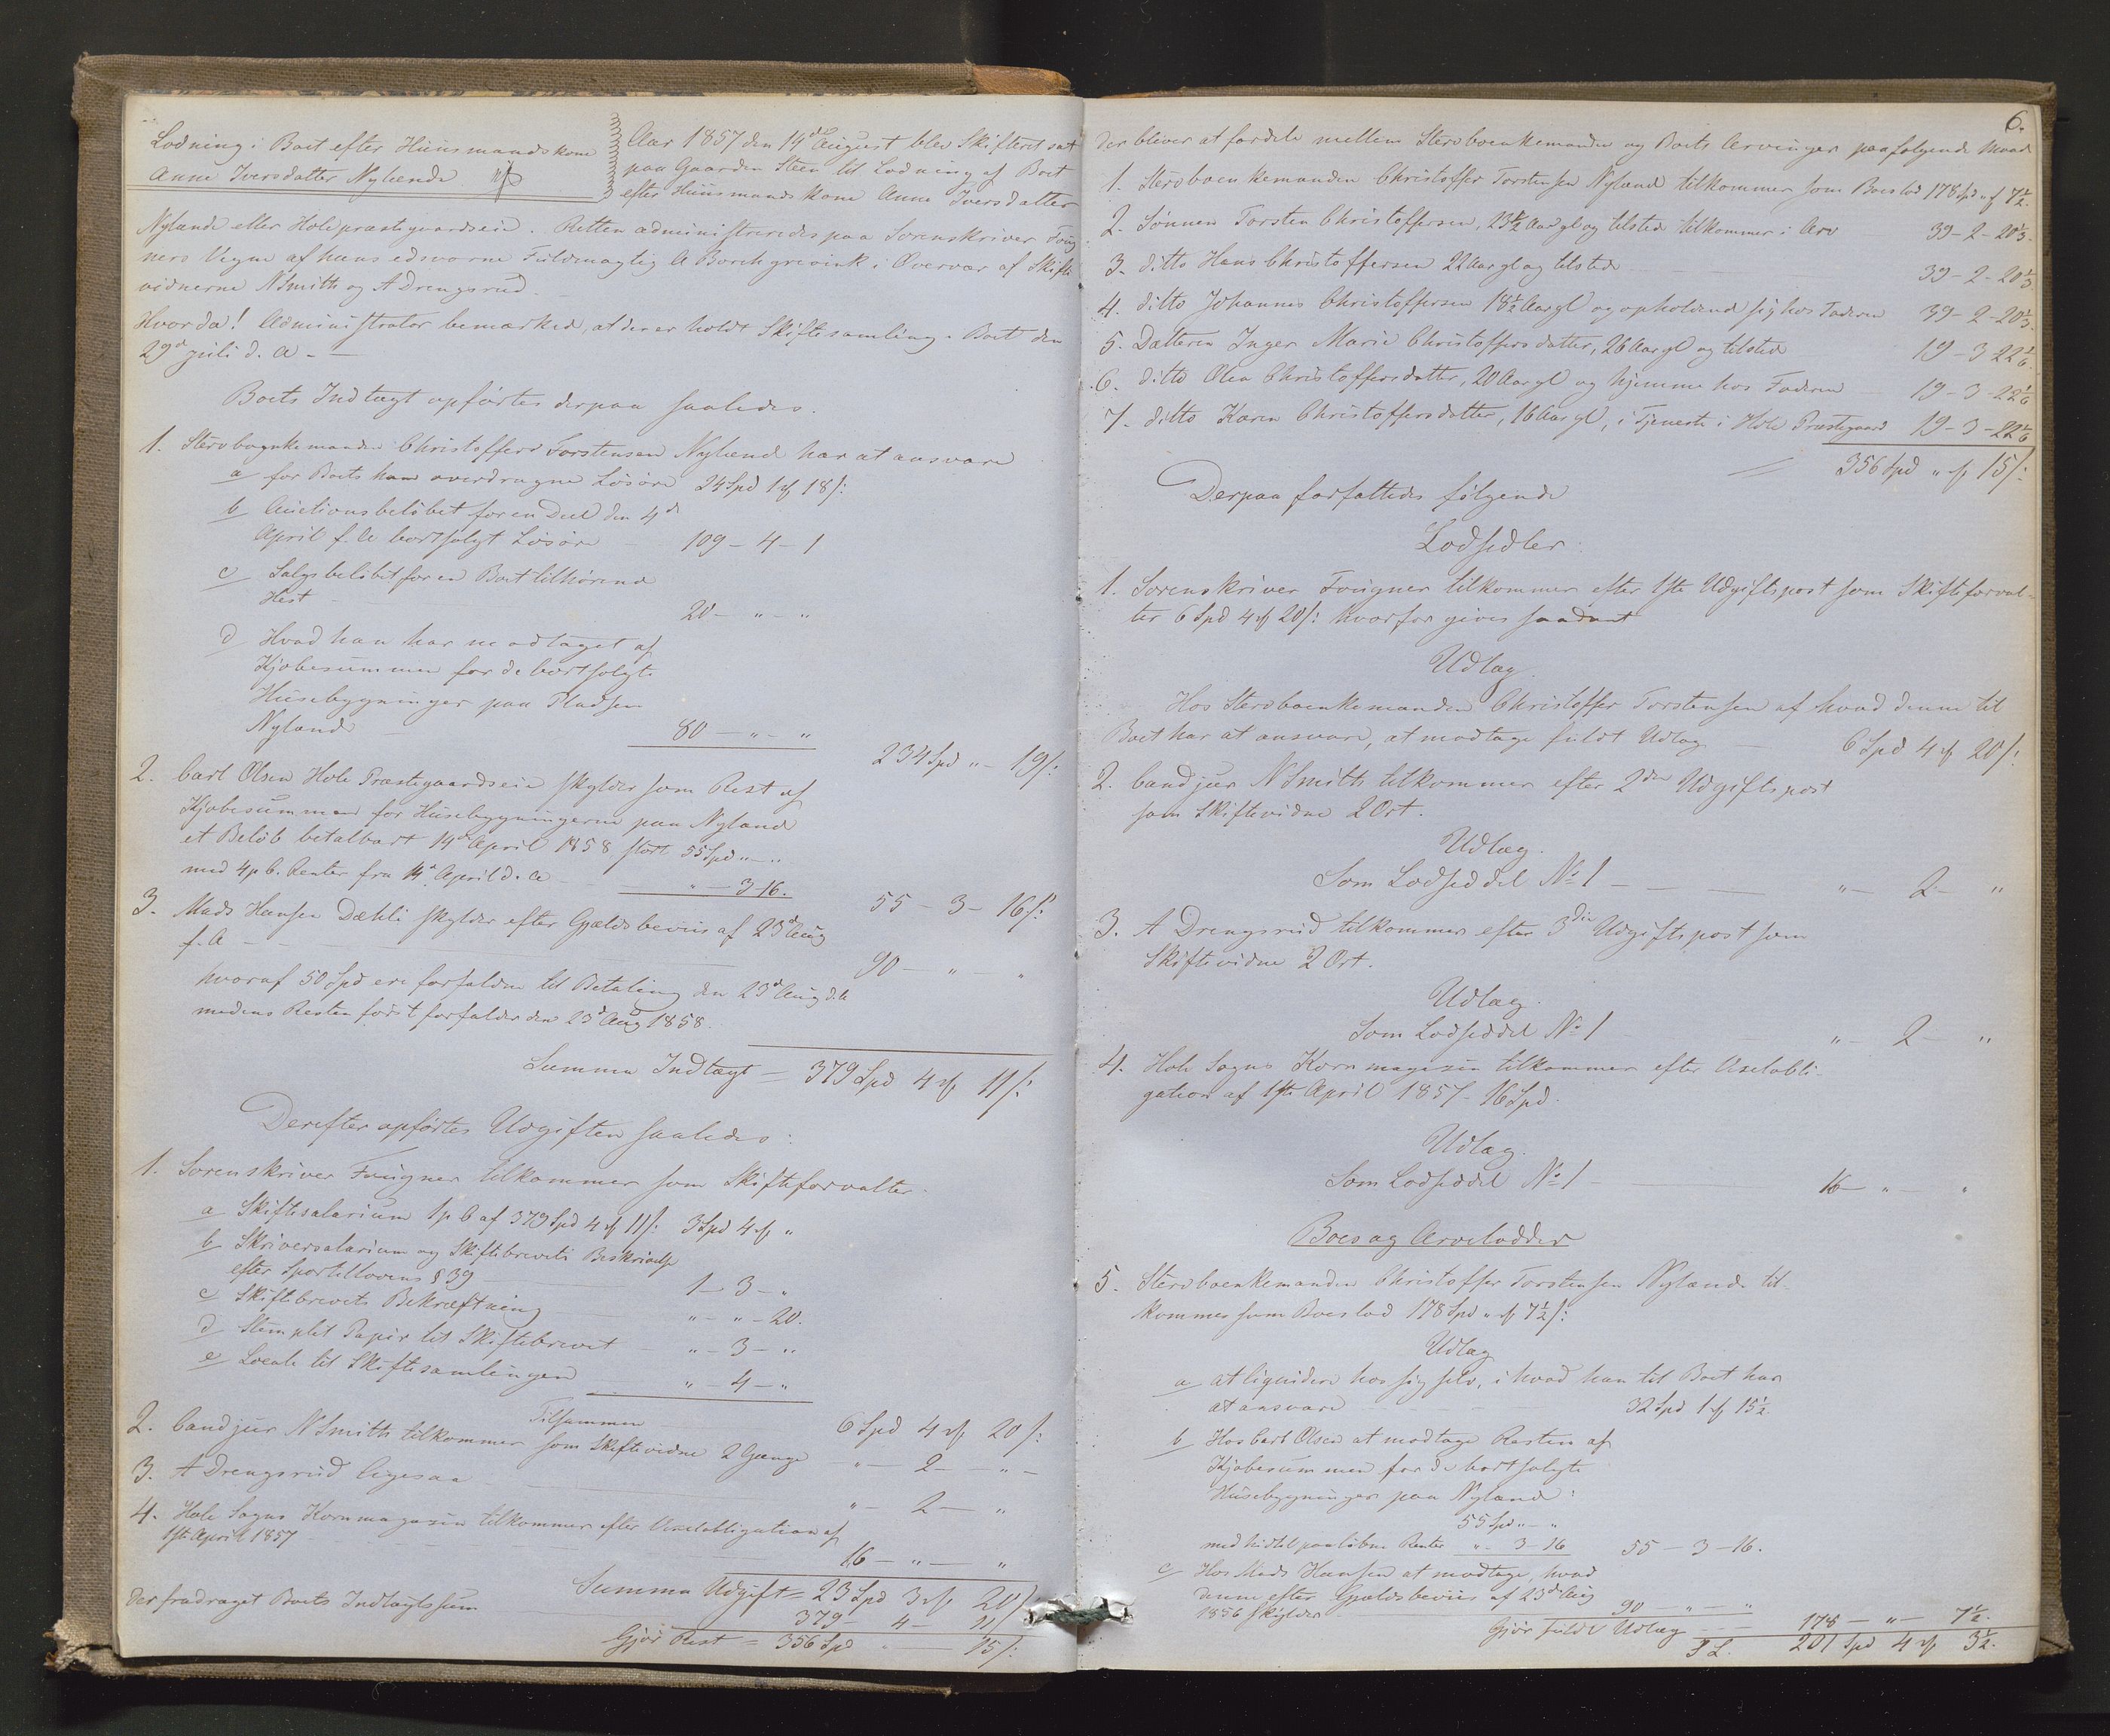 Lodning i Boet efter Huusmandskone
Anne Iversdatter Nylænde
Aar 1857 den 19d August blev Skifteret sat
paa Gaarden Steen til Lodning af Boet
efter Huusmandskone Anne Iversdatter
Nylænde eller Hole præstegaardseie. Retten administreredes paa Sorenskriver Foug
ners Vegne af hans edsvorne Fuldmægtig A Borchgrevink i Overvær af Skifte
vidnerne N Smith og A Drengsrud
Hvorda! Administrator bemærked, at der er holdt Skiftesamling i Boet den
29d juli d. A. —
Boets Indtægt opførtes derpaa saaledes.
1. Stervboenkemanden Christoffer Torstensen Nylænd har at ansvare
a for Boets ham overdragne Løsøre 24 Spd 1 # 18 s:
b Auctionsbeløbet for en Deel den 4d
April f. A bortsolgt Løsøre — 109 – 4 – 1
c Salgsbeløbet for en Boet tilhørende
Hest 20 – " – "
d Hvad han har modtaget af
Kjøbesummen for de bortsolgte
Huusebygninger paa Pladsen
Nylænde 80 – " – "
234 Spd " – 19 s:
2. Carl Olsen Hole Præstegaardseie skylder som Rest af
Kjøbesummen for Huusebygningerne paa Nylænde
et Beløb betalbart 14d April 1858 stort 55 Spd " – "
med 4 p C. Renter fra 14d April d. A — " – 3 – 16.
55 – 3 – 16 s:
3. Mads Hansen Dæhli skylder efter Gjældsbeviis af 23d Aug
f. A — 90 – " – "
hvoraf 50 Spd ere forfaldne til Betaling den 23d Aug d. A
medens Resten først forfalder den 23d Aug 1858.
Summa Indtægt = 379 Spd 4 # 11 s:
Derefter opførtes Udgiften saaledes:
1. Sorenskriver Fougner tilkommer som Skifteforvalter
a Skiftesalarium 1 p C af 379 Spd 4 # 11 s: 3 Spd 4 # "
b Skriversalarium og Skiftebrevets Beskrivelse
efter Sportellovens § 39 1 – 3 – "
c Skiftebrevets Bekræftning " – " – 20.
d Stemplet Papir til Skiftebrevet " – 3 – "
e Locale til Skiftesamlingen " – 4 – "
Tilsammen 6 Spd 4 # 20 s:
2. Cand jur N Smith tilkommer som Skiftevidne 2 Gange " – 2 – "
3. A Drengsrud ligesaa " – 2 – "
4. Hole Sogns Kornmagasin tilkommer efter Vexelobligation af
1ste April 1857 16 – " – "
Summa Udgift = 23 Spd 3 # 20 s
Der fradraget Boets Indtægtssum 379 – 4 – 11
Gjør Rest = 356 Spd " – 15 s:
6.
Der bliver at fordele mellem Stervboenkemanden og Boets Arvinger paafølgende Maade
1. Stervboenkemanden Christoffer Torstensen Nylænd tilkommer som Boeslod 178 Spd " # 7½.
2. Sønnen Torsten Christoffersen, 23½ Aar gl og tilstede tilkommer i Arv 39 – 2 – 20⅓.
3. ditto Hans Christoffersen 22 Aar gl og tilstede 39 – 2 – 20⅓
4. ditto Johannes Christoffersen 18½ Aar gl og opholdend sig hos Faderen 39 – 2 – 20⅓.
5. Datteren Inger Marie Christoffersdatter, 26 Aar gl og tilstede 19 – 3 – 22⅙.
6. ditto Olea Christoffersdatter, 20 Aar gl og hjemme hos Faderen 19 – 3 – 22⅙
7. ditto Karen Christoffersdatter, 16 Aar gl, i Tjeneste i Hole Præstegaard 19 – 3 – 22⅙
356 Spd " # 15 s:
Derpaa forfattedes følgende
Lodsedler:
1. Sorenskriver Fougner tilkommer efter 1ste Udgiftspost som Skifteforval-
ter 6 Spd 4 # 20 s: hvorfor gives saadant
Udlæg.
Hos Stervboenkemanden Christoffer Torstensen af hvad denne til
Boet har at ansvare, at modtage fuldt Udlæg — 6 Spd 4 # 20 s:
2. Cand jur N Smith tilkommer efter 2den Udgiftspost
som Skiftevidne 2 Ort.
Udlæg.
Som Lodseddel No 1 — " – 2 – "
3. A Drengsrud tilkommer efter 3die Udgiftspost som
Skiftevidne 2 Ort.
Udlæg.
Som Lodseddel No 1 " – 2 – "
4. Hole Sogns Kornmagasin tilkommer efter Vexelobli-
gation af 1ste April 1857 – 16 Spd.
Udlæg.
Som Lodseddel No 1 — 16 – " – "
Boes og Arvelodder
5. Stervboenkemanden Christoffer Torstensen Nylænde til-
kommer som Boeslod 178 Spd " # 7½ s:
Udlæg
a at liquidere hos sig selv, i hvad han til Boet har
at ansvare 32 Spd 1 # 15½
b Hos Carl Olsen at modtage Resten af
Kjøbesummen for de bortsolgte
Huusebygninger paa Nylænde:
55 Spd " – "
med hidtil paaløbne Renter " – 3 – 16 55 – 3 – 16.
c Hos Mads Hansen at modtage, hvad
denne efter Gjældsbeviis af 23d Aug
1856 skylder 90 – " – "
Gjør fuldt Udlæg — 178 – " – 7½.
S L. 201 Spd 4 # 3½.